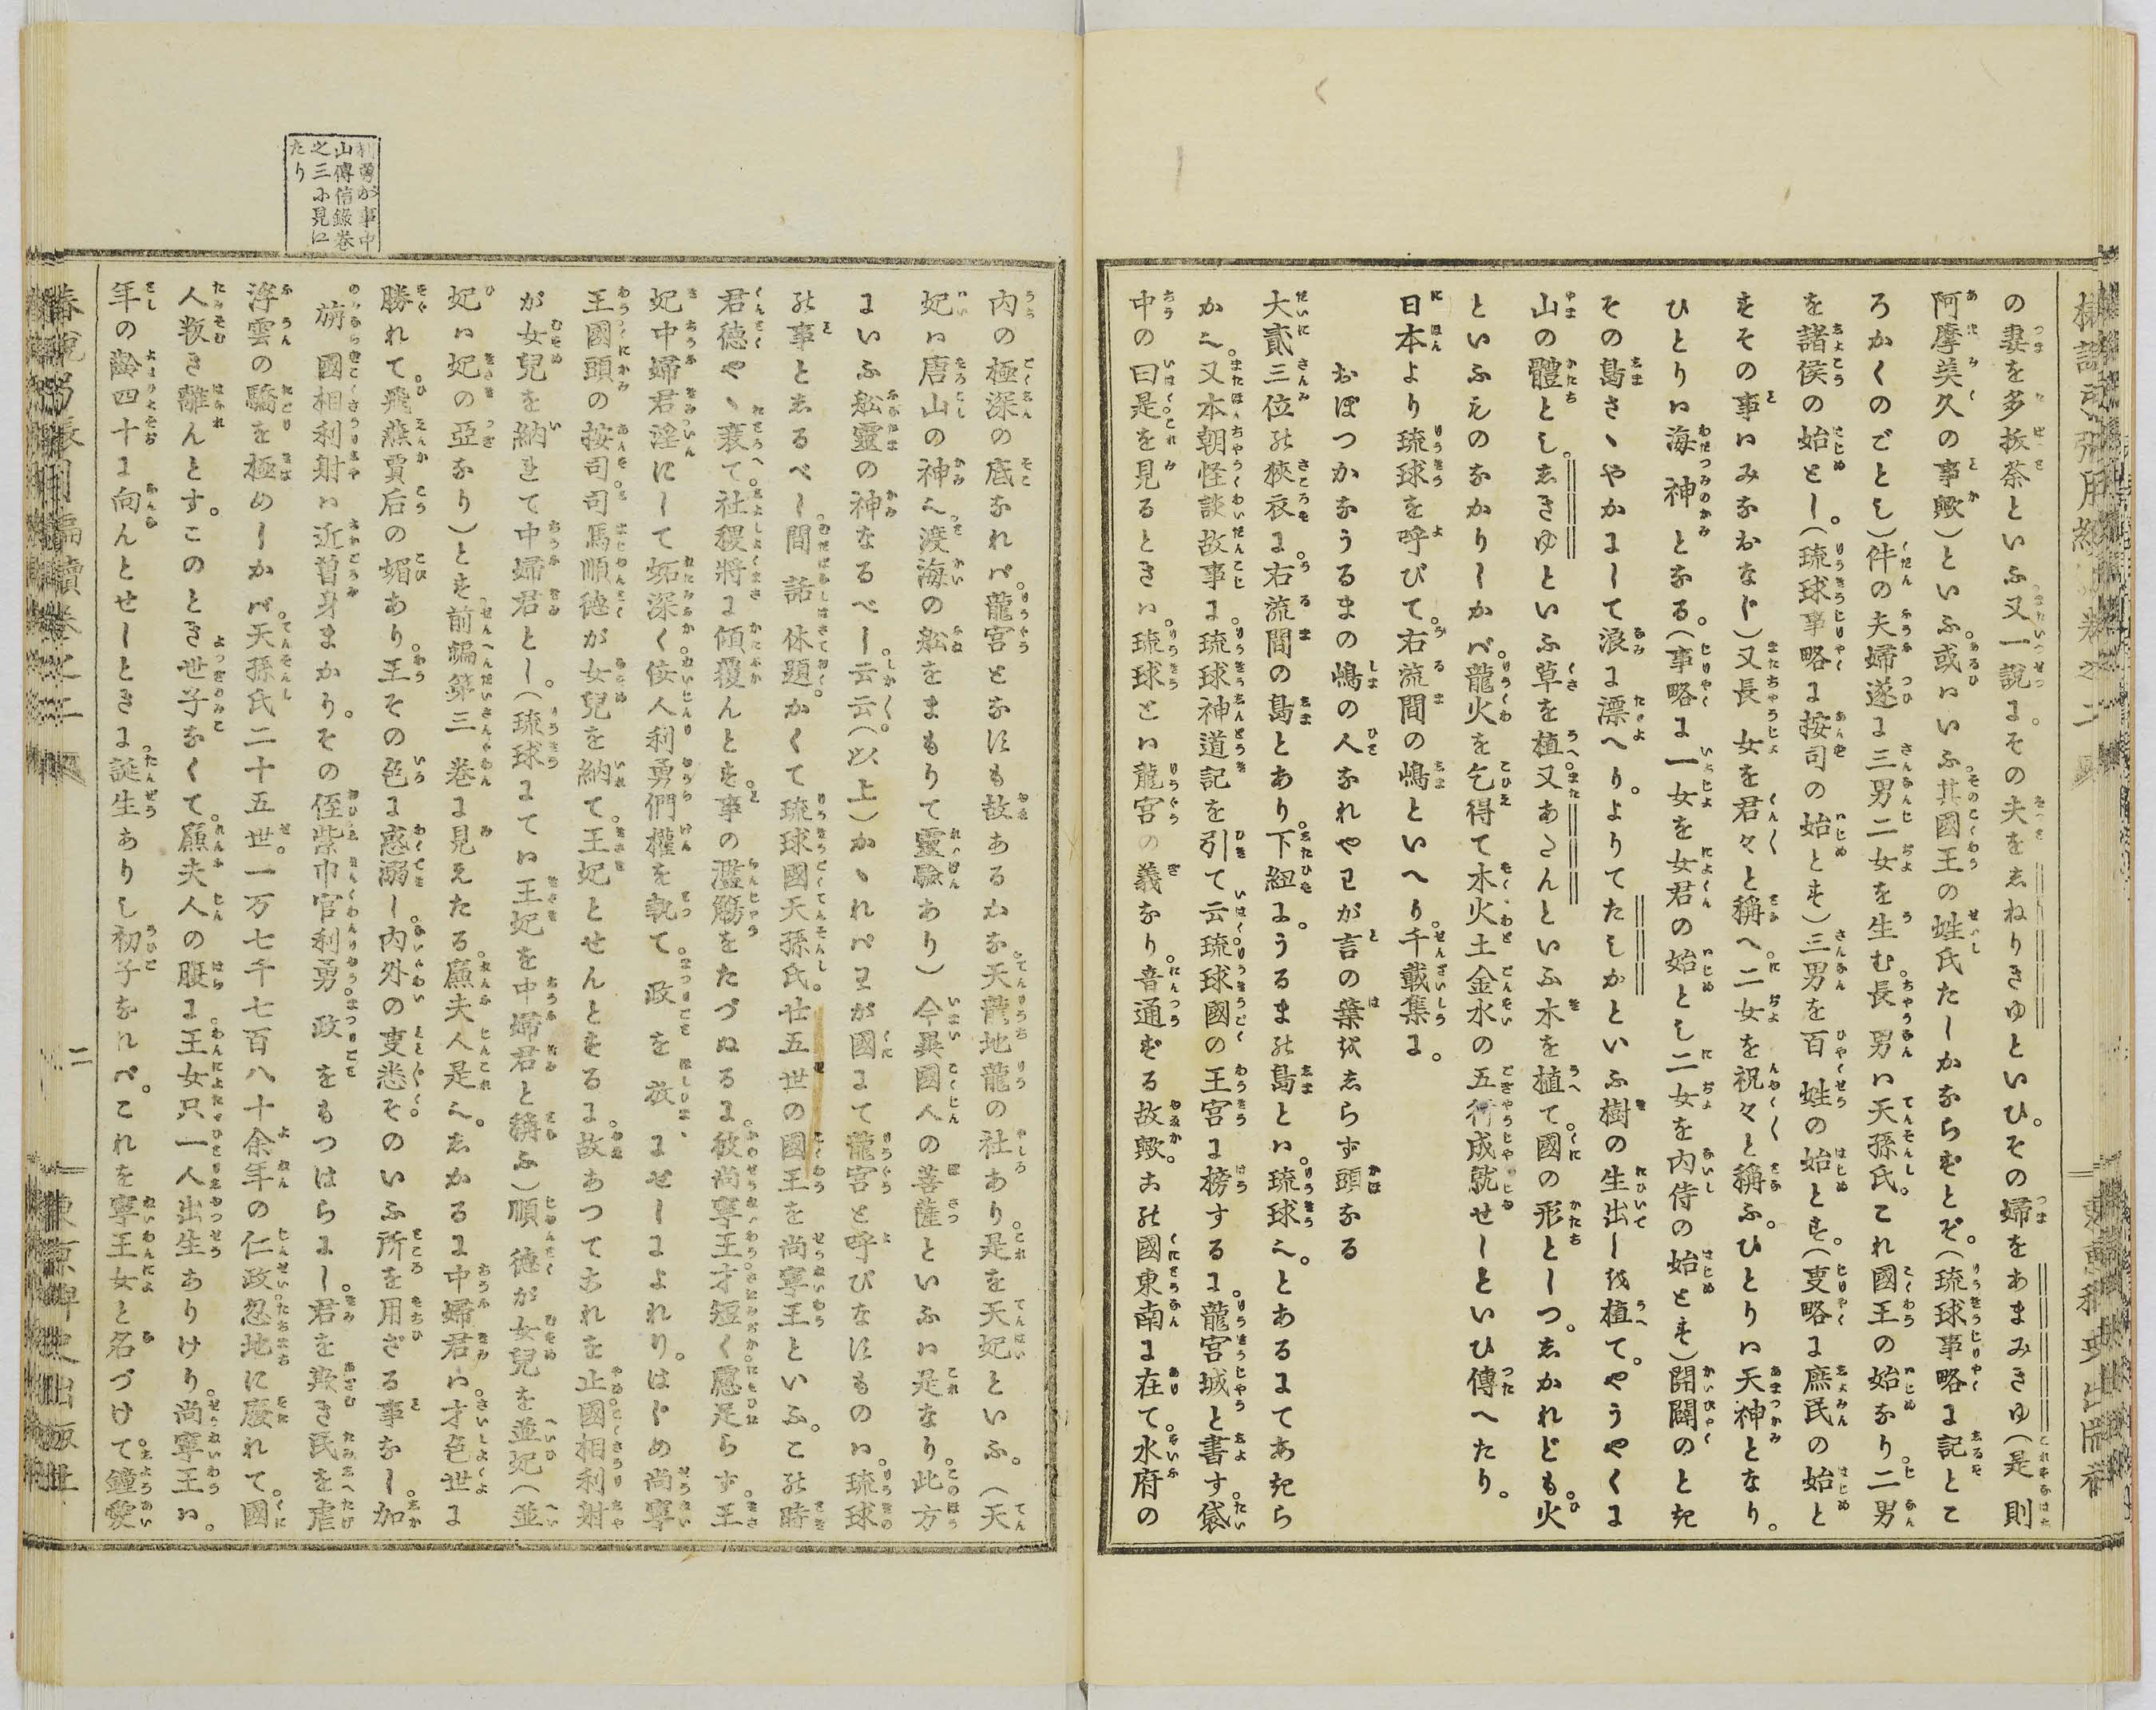 の妻を多抜荼といふ又一説に。その夫をゑねりきゆといひ。その婦をあまみきゆ(是則
阿摩美久の事歟)といふ。或ハいふ其國王の姓氏たしかならずとぞ。(琉球事略に記とこ
ろかくのごとし)件の夫婦遂に三男二女を生む。長男ハ天孫氏。これ國王の始なり。二男
を諸侯の始とし。(琉球事略に按司の始とす)三男を百姓の始とす。(叓略に庶民の始と
すその事ハみなおなじ)又長女を君々と稱へ。二女を祝々と稱ふ。ひとりハ天神となり。
ひとりハ海神となる。(事略に一女を女君の始とし二女を内侍の始とす)開闢のとき
その島さゝやかにして浪に漂へり。よりてたしかといふ樹の生出しを植て。やうやくに
山の體とし。ゑきゆといふ草を植。又あさんといふ木を植て。國の形としつ。ゑかれども。火
といふものなかりしかバ。龍火を乞得て木火土金水の五行成就せしといひ傳へたり。
日本より琉球を呼びて。右流間の嶋といへり。千載集に。
おぼつかなうるまの嶋の人なれやワが言の葉をゑらず頭なる
大貳三位の狹衣に。右流間の島とあり。下紐に。うるまの島とハ。琉球也。とあるにてあきら
か也。又本朝怪談故事に。琉球神道記を引て云。琉球國の王宮に榜するに龍宮城と書す。袋
中の曰。是を見るときハ。琉球とハ龍宮の義なり。音通ずる故歟。この國東南に在て。水府の
内の極深の底なれバ。龍宮となすも故あるかな。天龍地龍の社あり。是を天妃といふ。(天
妃ハ唐山の神也。渡海の舩をまもりて靈驗あり)今異國人の菩薩といふハ是なり。此方
にいふ舩靈の神なるべし。云云。(以上)かゝれバワが國にて龍宮と呼びなすものハ。琉球
の事とゑるべし。間話休題。かくて琉球國天孫氏。廿五世の國王を尚寧王といふ。この時
君德やゝ衰て。社稷將に傾覆んとす。事の濫觴をたづぬるに。彼尚寧王才短く慮足らず。王
妃中婦君淫にして妬深く。佞人利勇們權を執て。政を放にせしによれり。はじめ尚寧
王國頭の按司。司馬順德が女兒を納て。王妃とせんとするに。故あつてこれを止。國相利射
が女兒を納せて中婦君とし。(琉球にてハ王妃を中婦君と稱ふ)順德が女兒を並妃(並
妃ハ妃の亞なり)とす。前編第三卷に見えたる。廉夫人是也。ゑかるに中婦君ハ。才色世に
勝れて。飛燕賈后の媚あり。王その色に惑溺し。内外の叓悉。そのいふ所を用ざる事なし。加
旃國相利射ハ近曽身まかり。その侄紫巾官利勇。政をもつはらにし。君を欺き民を虐
浮雲の驕を極めしかバ。天孫氏二十五世。一万七千七百八十余年の仁政忽地に廢れて。國
人叛き離んとす。このとき世子なくて。廉夫人の腹に。王女只一人出生ありけり。尚寧王ハ。
年の齡四十に向んとせしときに。誕生ありし初子なれバ。これを寧王女と名づけて。鐘愛
利勇が事中
山傳信録巻
之三に見え
たり
二